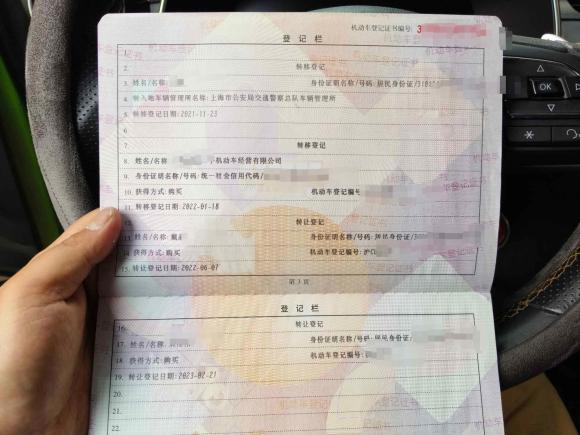 机动车登记证书编号: 3
登记栏
2. 转移登记
3. 姓名/名称: 身份证明名称/号码: 居民身份证/310
4. 转入地车辆管理所名称: 上海市公安局交通警察总队车辆管理所
5. 转移登记日期: 2021-11-23
6.
7. 转移登记
8. 姓名/名称: 机动车经营有限公司
9. 身份证明名称/号码: 统一社会信用代码/
10. 获得方式: 购买 机动车登记编号
11. 转移登记日期: 2022-01-18
转让登记
13. 姓名/名称: 戴 身份证明名称/号码: 居民身份证/
14. 获得方式: 购买 机动车登记编号: 沪
15. 转让登记日期: 2022-06-07
第 3 页
登记栏
16. 转让登记
17. 姓名/名称: 身份证明名称/号码: 居民身份证/
18. 获得方式: 购买 机动车登记编号:
19. 转让登记日期: 2023-02-21
20.
21.
22.
MODE
OK